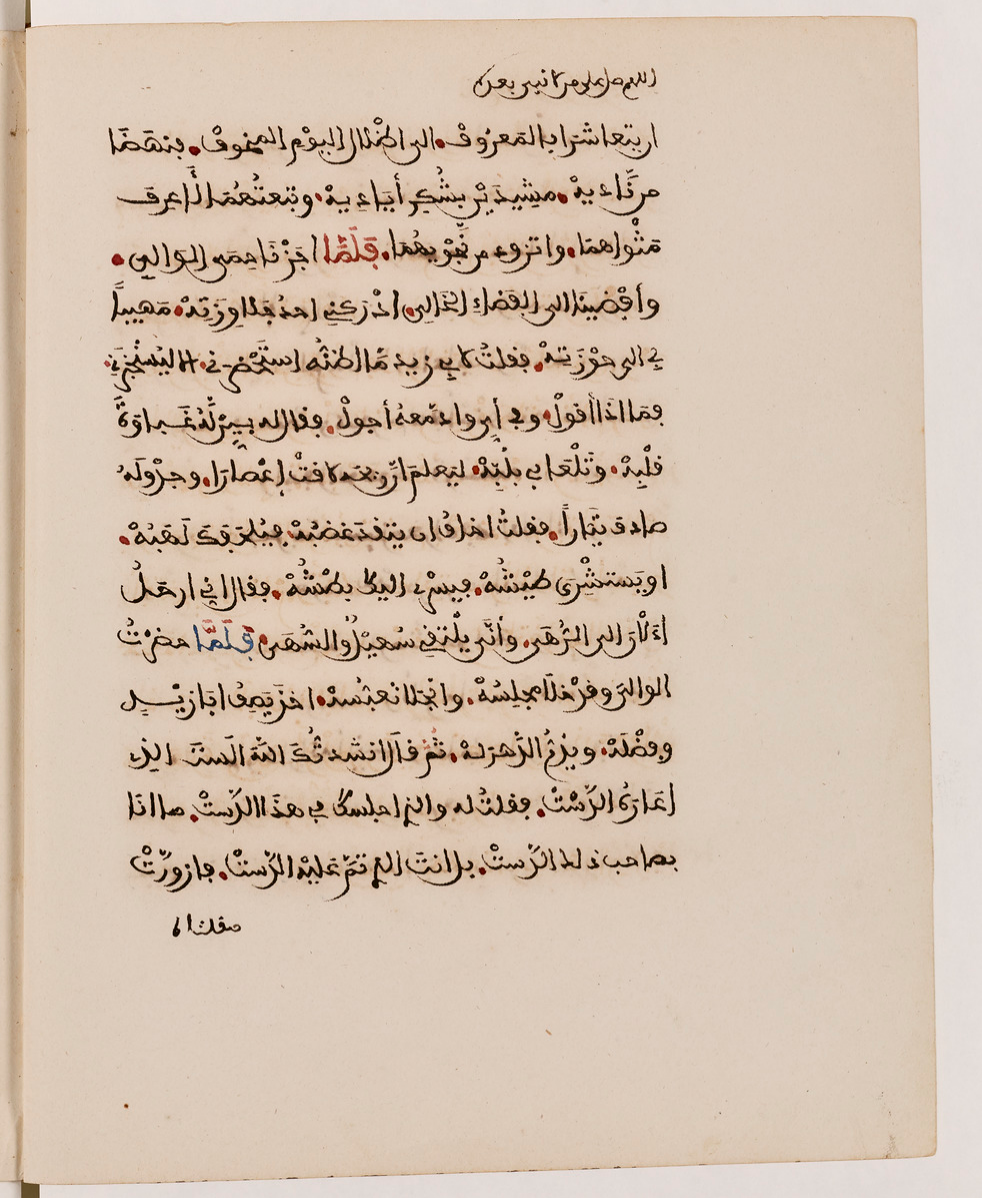 اللهم صل على من لا نبي بعده
ارتعاشرابالمعروف. الى اظلال اليوم المخوف. فنهضا
من ناديه. مشيدين بشكر أياديه. وتبعتهما لأعرف
مثواهما. واتزود من نجويهما. فلما اجزنا حمى الوالي.
وأفضينا الى الفضاء الخالي. ادركني احد جلاوزته. مهيبا
بي الى حوزته. فقلت لابي زيد ما اظنه استحضرني. الا ليستخبرني.
فما اذا أقول. وفي أي واد معه أجول. فقال له بين له غباوة
قلبه. وتلعابي بلبه. ليعلم ان ريحه لاقت إعصارا. وجدوله
صادف تيارا. فقلت اخاف ان يتقد غضبه. فيلفحك لهبه.
او يستشري طيشه. فيسري اليك بطشه. فقال اني ارحل
الآن الى الرهى. وأنى يلتقي سهيل والسهى. فلما حضرت
الوالي وقد خلا مجلسه. وانجلا تعبسه. اخذ يصف ابا زيد
وفضله. ويذم الدهر له. ثم قال انشدتك الله الست الذي
اعاره الدست. فقلت له والذي اجلسك في هذا الدست. ما انا
بصاحب ذلك الدست. بل انت الذي تم عليه الدست. فازورت
مقلتا